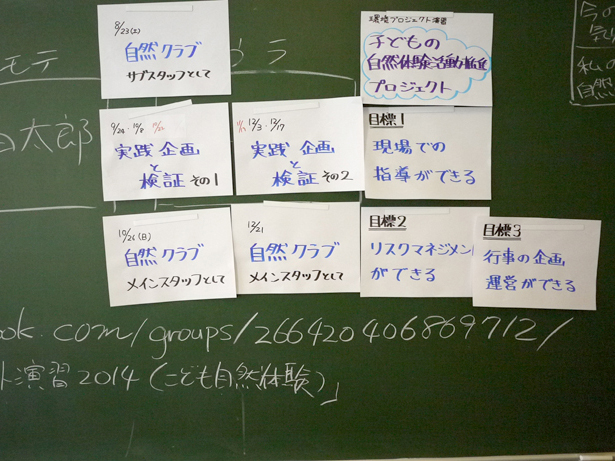 8/23(土)
自然クラブ
サブスタッフとして
モテ
ウラ
環境プロジェクト演習
子どもの
自然体験活動推進
プロジェクト
今の
私の
自然
太郎
9/24・10/8
実践 企画
と
検証 その1
12/3・12/17
実践 企画
と
検証 その2
目標1
現場での
指導ができる
10/26(日)
自然クラブ
メインスタッフとして
12/21
自然クラブ
メインスタッフとして
目標2
リスクマネジメント
ができる
目標3
行事の企画
運営ができる
ook.com/groups/266420406869712/
ト演習2014(こども自然体験)」